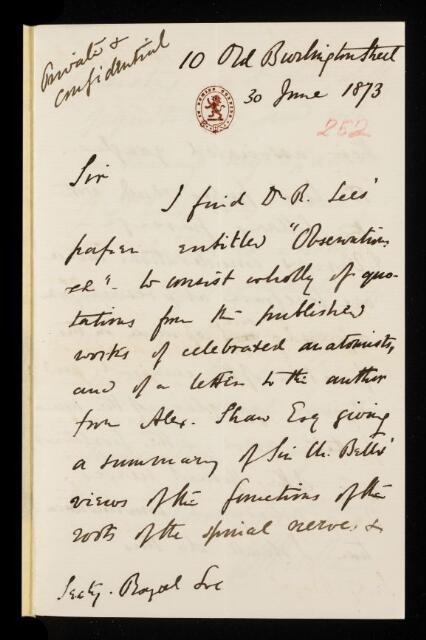 Private &
confidential
10 Old Burlington Street
30 June 1873
252
Sir
I find Dr. R. Lees'
paper entitled "Observations
&c" - to consist wholly of quo-
tations from the published
works of celebrated anatomists,
and of a letter to the author
from Alex. Shaw Esq giving
a summary of Sir Ch. Bell's
views of the functions of the
roots of the spinal nerves &
Secty. Royal Soc